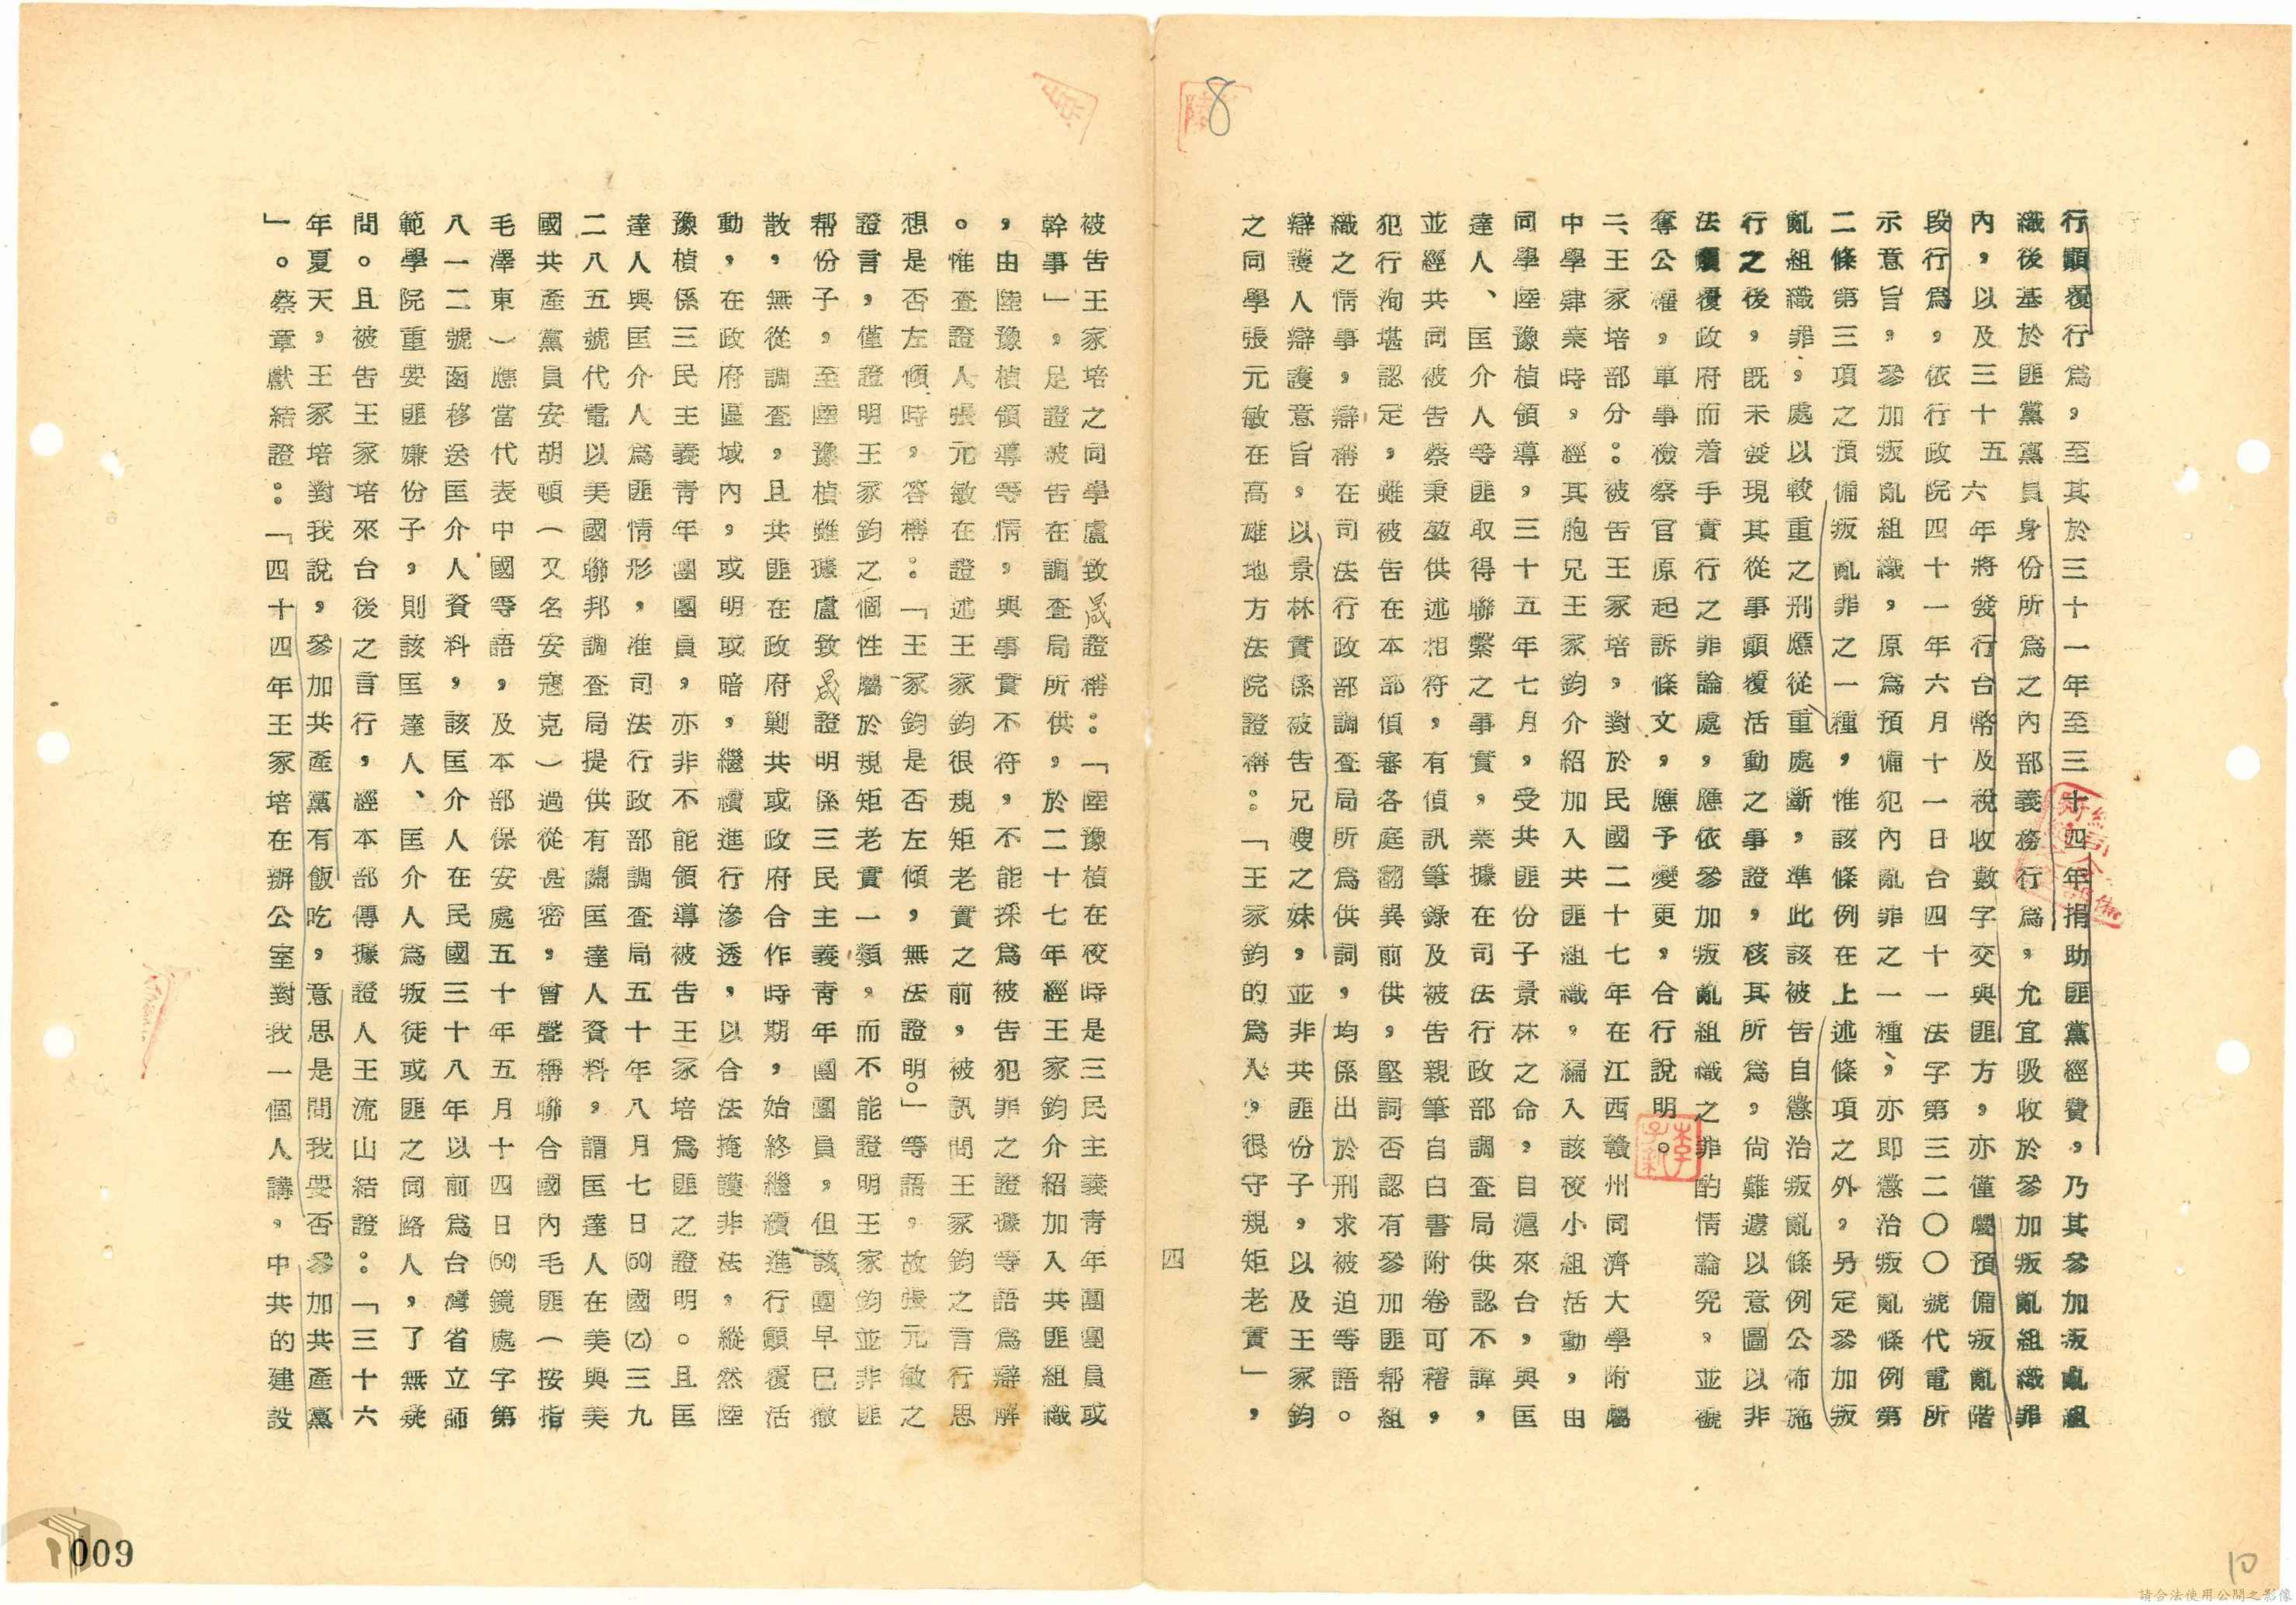 8
行顛覆行爲，至其於三十一年至三十四年捐助匪黨經費，乃其參加叛亂組
織後基於匪黨黨員身份所爲之內部義務行爲，允宜吸收於參加叛亂組織罪
內，以及三十五六年將發行台幣及稅收數字交與匪方，亦僅屬預備叛亂階
段行爲，依行政院四十一年六月十一日台四十一法字第三二〇〇號代電所
示意旨，參加叛亂組織，原爲預備犯內亂罪之一種，亦即懲治叛亂條例第
二條第三項之預備叛亂罪之一種，惟該條例在上述條項之外，另定參加叛
亂組織罪，處以較重之刑應從重處斷，準此該被告自懲治叛亂條例公佈施
行之後，既未發現其從事顛覆活動之事證，核其所爲，尚難遽以意圖以非
法顛覆政府而着手實行之罪論處，應依參加叛亂組織之罪酌情論究，並褫
奪公權，軍事檢察官原起訴條文，應予變更，合行說明。
二、王家培部分：被告王家培，對於民國二十七年在江西贛州同濟大學附屬
中學肄業時，經其胞兄王家鈞介紹加入共匪組織，編入該校小組活動，由
同學陸豫楨領導，三十五年七月，受共匪份子景林之命，自滬來台，與匡
達人、匡介人等匪取得聯繫之事實，業據在司法行政部調查局供認不諱，
並經共同被告蔡秉堃供述相符，有偵訊筆錄及被告親筆自白書附卷可稽，
犯行洵堪認定，雖被告在本部偵審各庭翻異前供，堅詞否認有參加匪幫組
織之情事，辯稱在司法行政部調查局所爲供詞，均係出於刑求被迫等語。
辯護人辯護意旨，以景林實係被告兄嫂之妹，並非共匪份子，以及王家鈞
之同學張元敏在高雄地方法院證稱：「王家鈞的爲人，很守規矩老實」，
四
被告王家培之同學盧致晟證稱：「陸豫楨在校時是三民主義青年團團員或
幹事」，足證被告在調查局所供，於二十七年經王家鈞介紹加入共匪組織
，由陸豫楨領導等情，與事實不符，不能採爲被告犯罪之證據等語爲辯解
。惟查證人張元敏在證述王家鈞很規矩老實之前，被訊問王家鈞之言行思
想是否左傾時，答稱：「王家鈞是否左傾，無法證明。」等語，故張元敏之
證言，僅證明王家鈞之個性屬於規矩老實一類，而不能證明王家鈞並非匪
幫份子，至陸豫楨雖據盧致晟證明係三民主義青年團團員，但該團早已撤
散，無從調查，且共匪在政府剿共或政府合作時期，始終繼續進行顛覆活
動，在政府區域內，或明或暗，繼續進行滲透，以合法掩護非法，縱然陸
豫楨係三民主義青年團團員，亦非不能領導被告王家培爲匪之證明。且匡
達人與匡介人爲匪情形，准司法行政部調查局五十年八月七日(50)國(乙)三九
二八五號代電以美國聯邦調查局提供有關匡達人資料，謂匡達人在美與美
國共產黨員安胡頓（又名安寇克）過從甚密，曾聲稱聯合國內毛匪（按指
毛澤東）應當代表中國等語，及本部保安處五十年五月十四日(50)鏡處字第
八一二號函移送匡介人資料，該匡介人在民國三十八年以前爲台灣省立師
範學院重要匪嫌份子，則該匡達人、匡介人爲叛徒或匪之同路人，了無疑
問。且被告王家培來台後之言行，經本部傳據證人王流山結證：「三十六
年夏天，王家培對我說，參加共產黨有飯吃，意思是問我要否參加共產黨
」。蔡章獻結證：「四十四年王家培在辦公室對我一個人講，中共的建設
009
10
請合法使用公開之影像